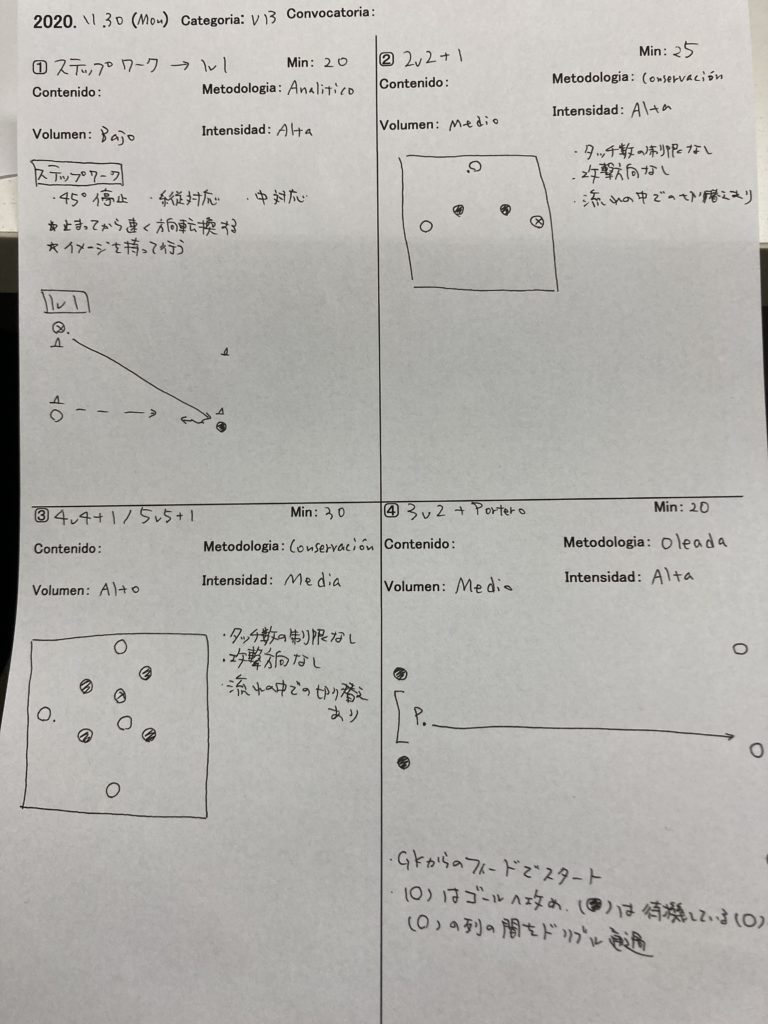 2020. 11.30 (Mon) Categoria: U13 Convocatoria:
① ステップワーク → 1v1 Min: 20
Contenido: Metodologia: Analitico
Volumen: Bajo Intensidad: Alta
ステップワーク
・45°停止 ・縦対応 ・中対応
★止まってから速く方向転換する
★イメージを持って行う
1v1
② 2v2+1 Min: 25
Contenido: Metodologia: Conservación
Volumen: Medio Intensidad: Alta
・タッチ数の制限なし
・攻撃方向なし
・流れの中での切り替えあり
③ 4v4+1 / 5v5+1 Min: 30
Contenido: Metodologia: Conservación
Volumen: Alto Intensidad: Media
・タッチ数の制限なし
・攻撃方向なし
・流れの中での切り替え
あり
④ 3v2 + Portero Min: 20
Contenido: Metodologia: Oleada
Volumen: Medio Intensidad: Alta
P.
・GKからのフィードでスタート
・(○)はゴールへ攻め、(●)は待機している(○)
(○)の列の間をドリブル通過